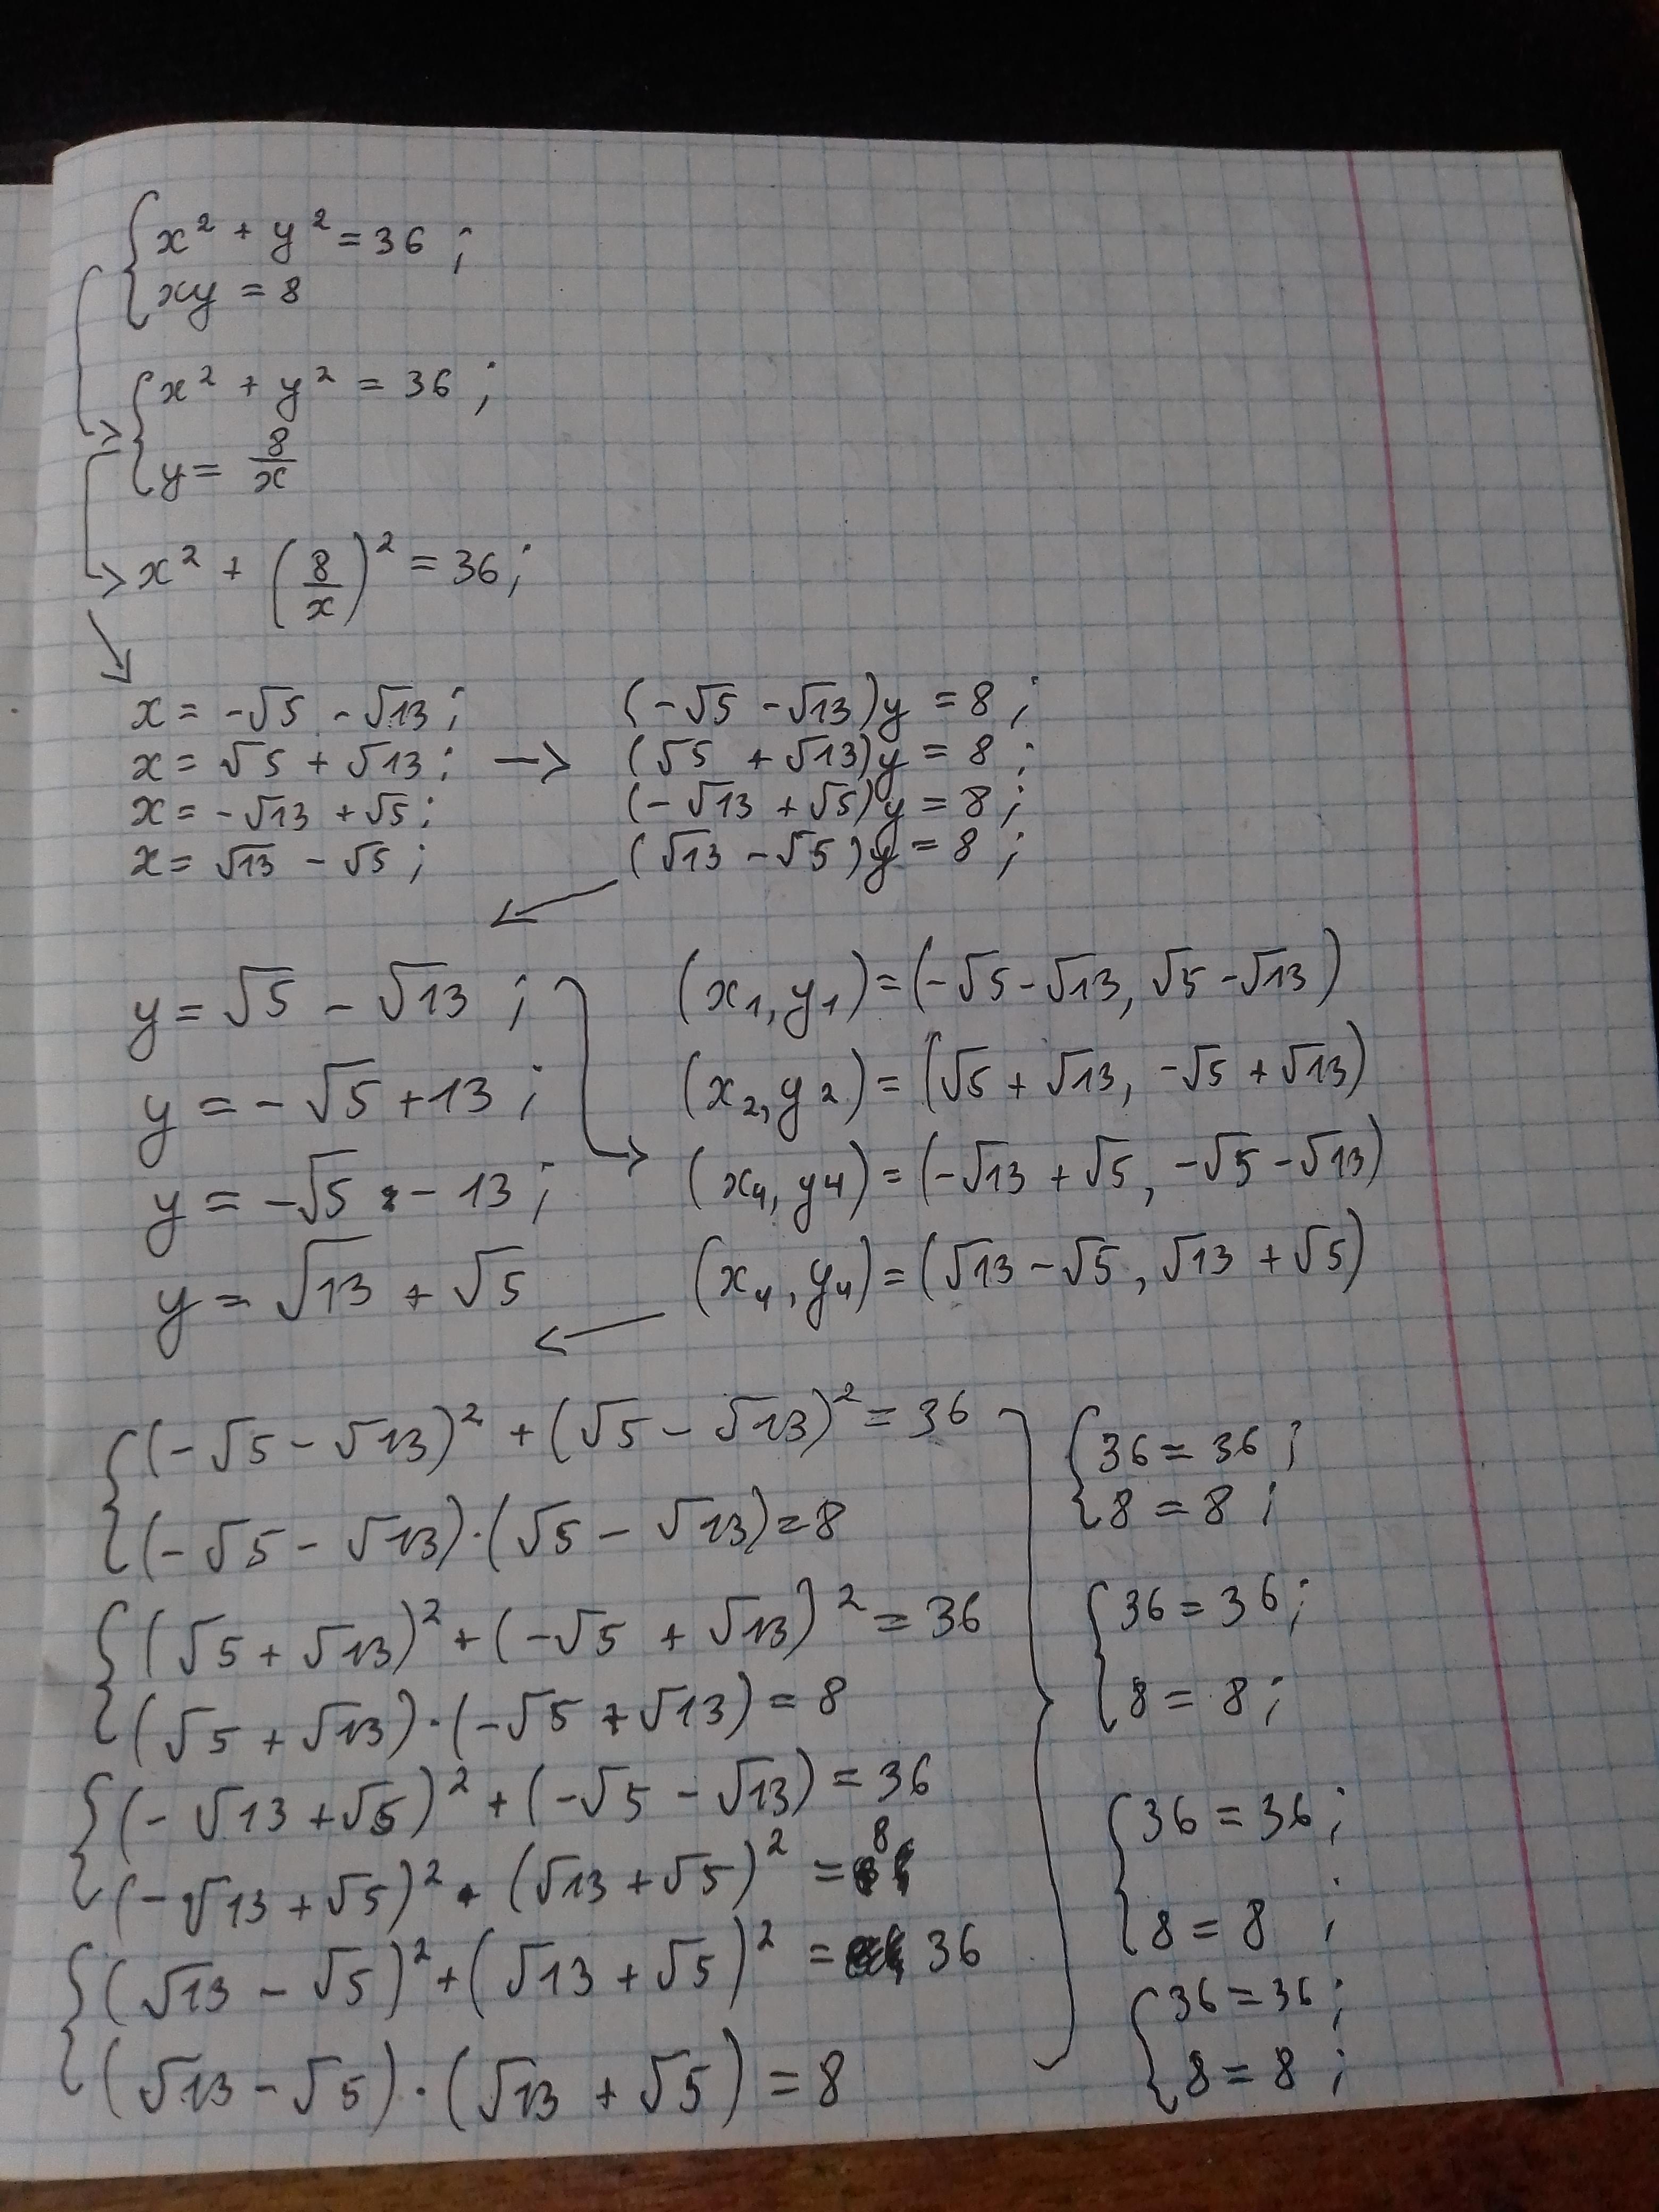 { x² + y² = 36 ;
xy = 8
{ x² + y² = 36 ;
y = 8/x
x² + (8/x)² = 36 ;
x = -√5 - √13 ;
x = √5 + √13 ; ->
x = -√13 + √5 ;
x = √13 - √5 ;
(-√5 - √13)y = 8 ;
(√5 + √13)y = 8 ;
(-√13 + √5)y = 8 ;
(√13 - √5)y = 8 ;
y = √5 - √13 ;
y = -√5 + 13 ;
y = -√5 - 13 ;
y = √13 + √5
(x₁, y₁) = (-√5 - √13, √5 - √13)
(x₂, y₂) = (√5 + √13, -√5 + √13)
(x₄, y₄) = (-√13 + √5, -√5 - √13)
(x₄, y₄) = (√13 - √5, √13 + √5)
{ (-√5 - √13)² + (√5 - √13)² = 36
(-√5 - √13)·(√5 - √13) = 8
{ (√5 + √13)² + (-√5 + √13)² = 36
(√5 + √13)·(-√5 + √13) = 8
{ (-√13 + √5)² + (-√5 - √13) = 36
(-√13 + √5)² · (√13 + √5)² = 8
{ (√13 - √5)² + (√13 + √5)² = 36
(√13 - √5)·(√13 + √5) = 8
{ 36 = 36 ;
8 = 8 ;
{ 36 = 36 ;
8 = 8 ;
{ 36 = 36 ;
8 = 8 ;
{ 36 = 36 ;
8 = 8 ;